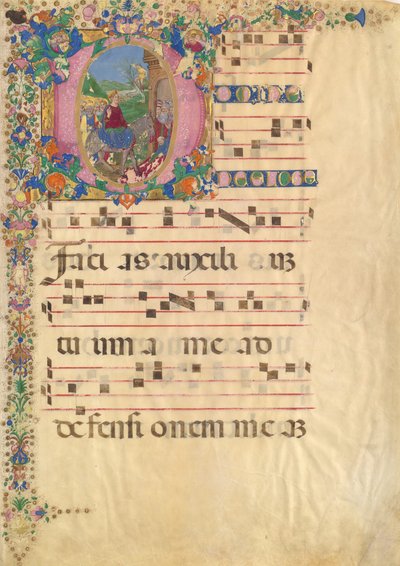 Domine
ne longe
Faci as auxili uz
tuum a me ad
defensi onem meaz